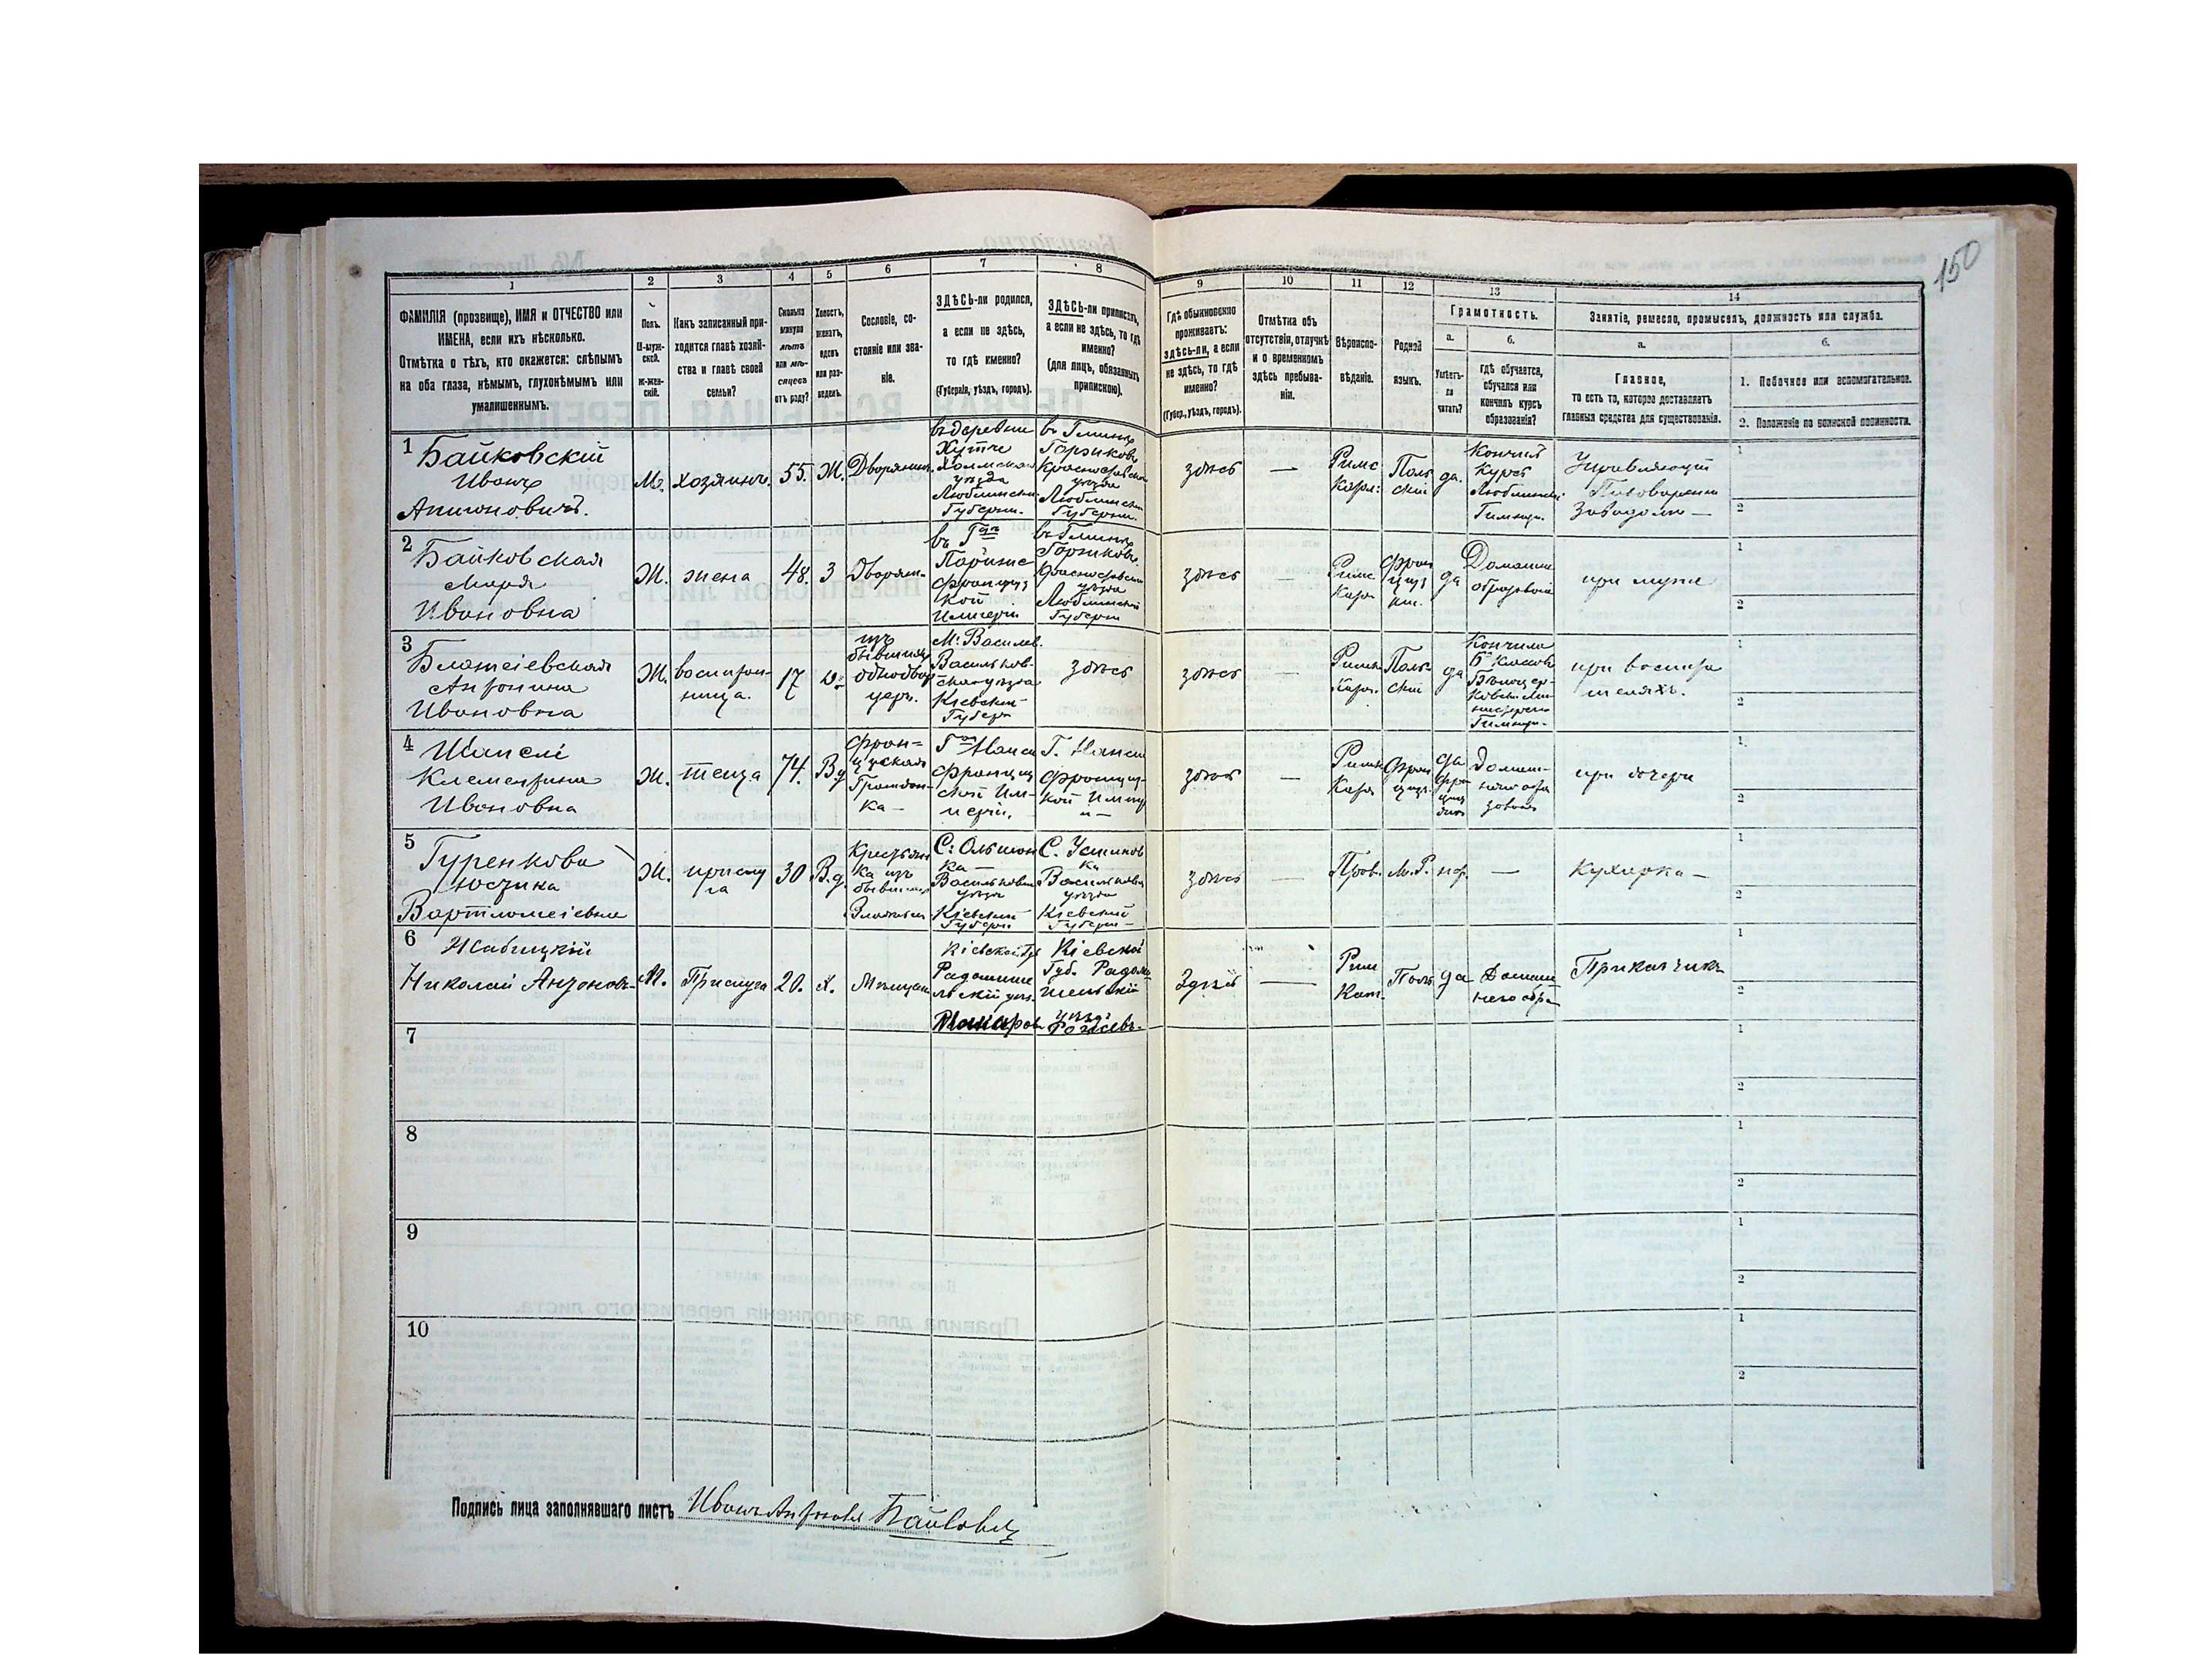 150
1 2 3 4 5 6 7 8 9 10 11 12 13 14
ФАМИЛІЯ (прозвище), ИМЯ и ОТЧЕСТВО или
ИМЕНА, если ихъ нѣсколько.
Отмѣтка о тѣхъ, кто окажется: слѣпымъ
на оба глаза, нѣмымъ, глухонѣмымъ или
умалишеннымъ.
Полъ.
М-муж-
ской.
Ж-жен-
скій.
Какъ записанный при-
ходится главѣ хозяй-
ства и главѣ своей
семьи?
Сколько
минуло
лѣтъ
или мѣ-
сяцевъ
отъ роду?
Холостъ,
женатъ,
вдовъ
или раз-
веденъ.
Сословіе, со-
стояніе или зва-
ніе.
ЗДѢСЬ-ли родился,
а если не здѣсь,
то гдѣ именно?
(Губернія, уѣздъ, городъ).
ЗДѢСЬ-ли приписанъ,
а если не здѣсь, то гдѣ
именно?
(для лицъ, обязанныхъ
припиской).
Гдѣ обыкновенно
проживаетъ:
здѣсь-ли, а если
не здѣсь, то гдѣ
именно?
(Губер., уѣздъ, городъ).
Отмѣтка объ
отсутствіи, отлучкѣ
и о временномъ
здѣсь пребыва-
ніи.
Вѣроиспо-
вѣданіе.
Родной
языкъ.
Грамотность.
а.
Умѣетъ-
ли
читать?
б.
гдѣ обучается,
обучался или
кончилъ курсъ
образованія?
Занятіе, ремесло, промыселъ, должность или служба.
а.
Главное,
то есть то, которое доставляетъ
главныя средства для существованія.
б.
1. Побочное или вспомогательное.
2. Положеніе по воинской повинности.
1 Байковскій
Иванъ
Антоновичъ.
М.
хозяинъ.
55.
Ж.
Дворянинъ.
въ деревне
Хутче
Холмскаго
уѣзда
Люблинской
Губерніи.
въ Гминѣ
Горжковъ
Красноставскаго
уѣзда
Люблинской
Губерніи.
здѣсь
—
Римс
Катол:
Поль
скій
да.
Кончилъ
Курсъ
Люблинской
Гимназ.
Управляющій
Пивоваренн
Заводомъ —
1
2
2 Байковская
Марія
Ивановна
Ж.
жена
48.
З
Дворян.
въ Гдѣ
Парижѣ
Француз
кой
Имперіи
въ Гминѣ
Горжковъ
Красноставскаго
уѣзда
Люблинской
Губерніи
здѣсь
—
Римс
Като
Фран
цуз
кій.
да
Домашн
образованіе
при мужѣ
1
2
3
Антонина
Ивановна
Ж.
воспитан-
ница.
17
изъ
бывшихъ
однодвор
цевъ.
М. Василев.
Васильков-
скаго уѣзда
Кіевской
Губер
здѣсь
здѣсь
—
Римс
Катол.
Поль
скій
да
Кончила
Гимназ.
при воспита
теляхъ.
1
2
4
Клементина
Ивановна
Ж.
теща
74.
Вд
Фран=
цузская
Граждан-
ка —
Француз
ской Им-
періи.
Г. Нанси
Француз-
кой Импер
и —
здѣсь
—
Римс
Като
Фран
цуз.
да
Фран
цуз
Домаш-
при дочери
1
2
5 Гуренкова
Юстина
Вартломеіевна
Ж.
прислу
га
30
В.д.
Крестьян
ка изъ
бывшихъ
С. Ольшан
ка —
Васильков
уѣзда
Кіевской
Губерн
С. Устинов
ка
Васильков
уѣзда
Кіевской
Губерн —
здѣсь
—
Прав.
М.Р.
нѣт.
—
Кухарка —
1
2
6 Жабицкій
Николай Антонов.
М.
Прислуга
20.
Х.
Мѣщан
Кіевской Гу
Радомыс
льскій уѣз.
Макаров
Кіевской
Губ. Радом
ысльскій
уѣзд
Рожевъ.
Здѣсь
—
Рим
Кат.
Поль
да
Домаш
нее обра
Прикащикъ
1
2
7
1
2
8
1
2
9
1
2
10
1
2
Подпись лица заполнявшаго листъ Иванъ Антоновъ Байковскій